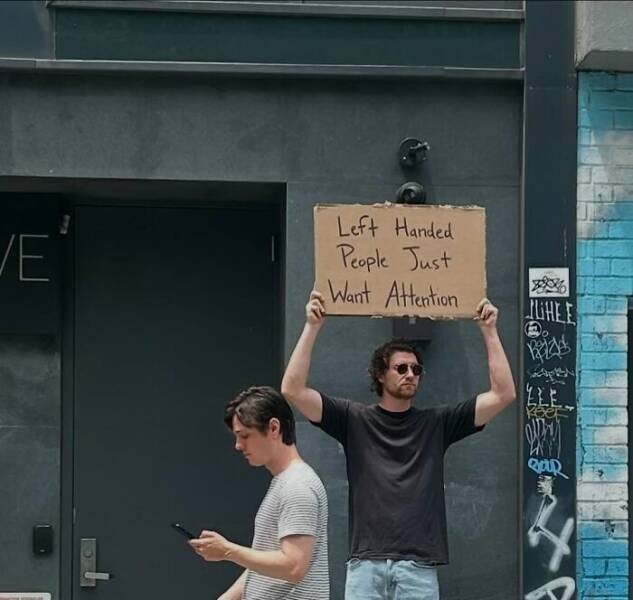 VE
Left Handed
People Just
Want Attention